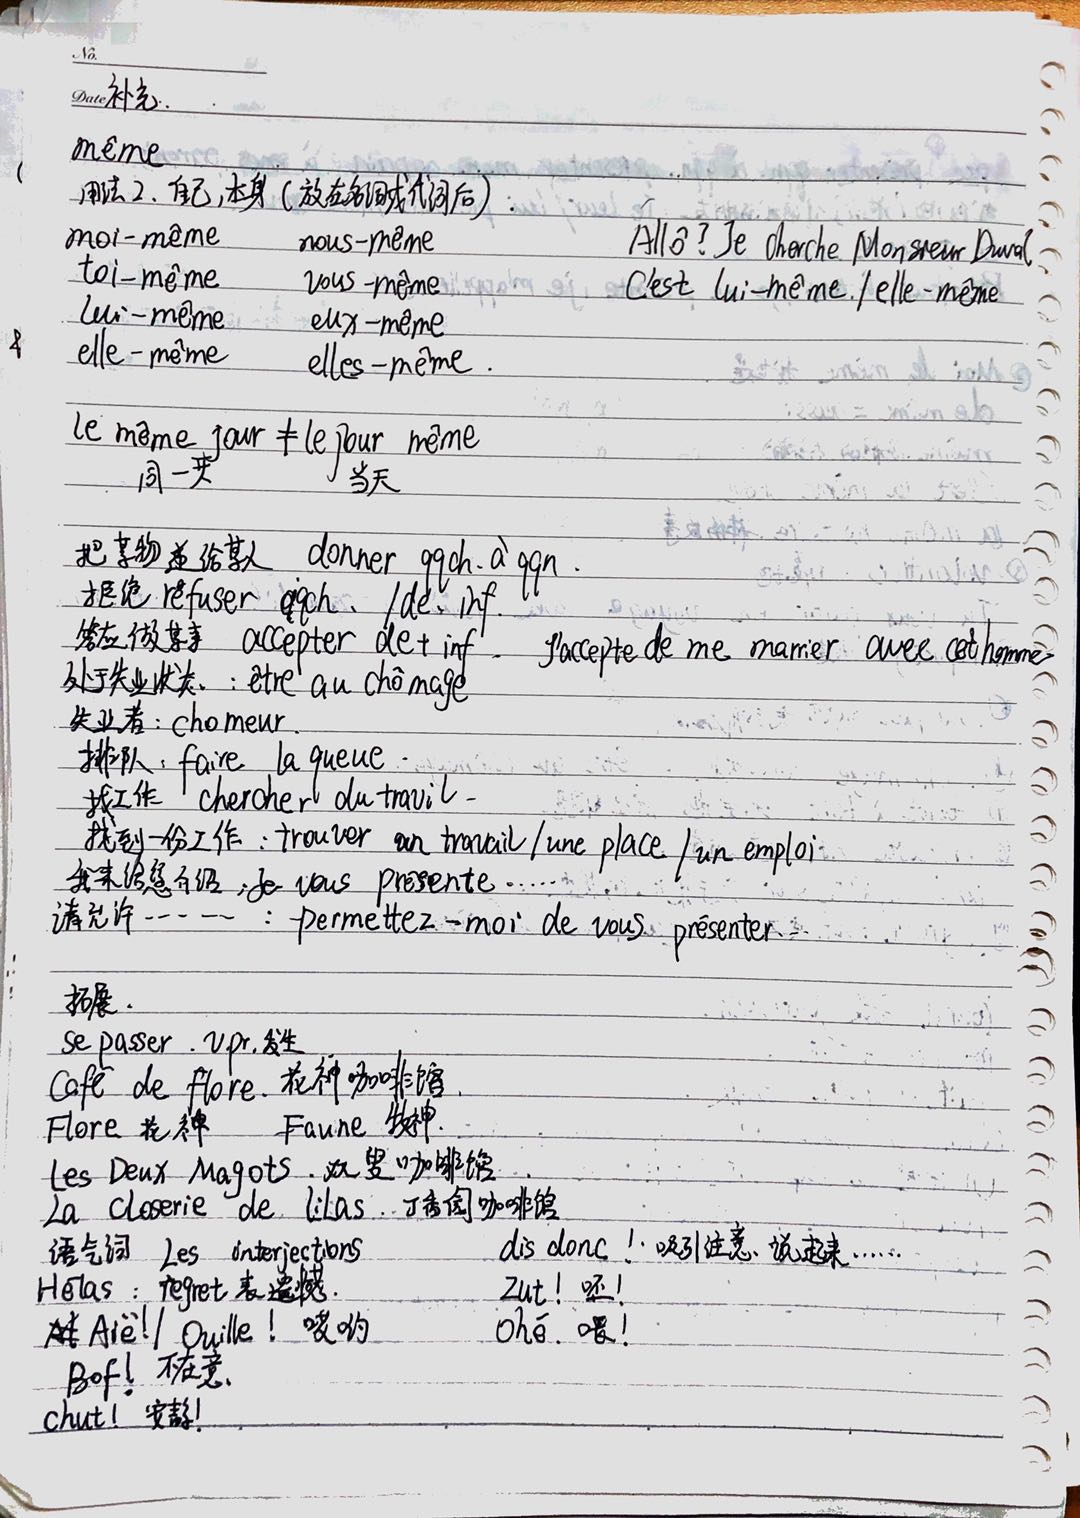 No.
Date 补充.
même
用法2. 自己,本身(放在名词或代词后).
moi-même nous-même Allô? Je cherche Monsieur Duval
toi-même vous-même C'est lui-même./elle-même
lui-même eux-même
elle-même elles-même.
le même jour ≠ le jour même
同一天 当天
把某物递给某人 donner qqch. à qqn.
拒绝 réfuser qqch. /de. inf.
答应做某事 accepter de + inf. J'accepte de me marrier avec cet homme.
处于失业状态.: être au chômage
失业者: chomeur.
排队: faire la queue.
找工作 chercher du travil.
找到一份工作: trouver un travail/une place /un emploi.
我来给您介绍: Je vous présente......
请允许------: permettez-moi de vous présenter....
拓展.
se passer. v.pr. 发生
Café de flore. 花神咖啡馆.
Flore 花神 Faune 牧神.
Les Deux Magots. 双叟咖啡馆.
La closerie de lilas. 丁香园咖啡馆
语气词 Les interjections dis donc!. 吸引注意、说起来......
Hélas: regret 表遗憾. Zut! 呸!
Aïe!/ Ouille! 哎哟 Ohé. 喂!
Bof! 不在意.
chut! 安静!